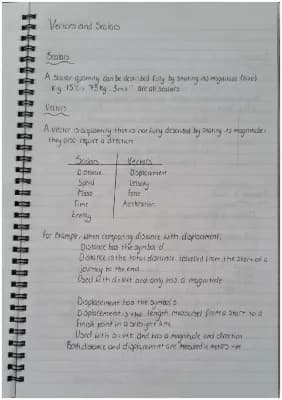 Vectors and Scalars
Scalars
A scalar quantity can be described fully by stating its magnitude (size)
15°C, 75kg, 3ms⁻¹ are all scalars
Vectors
A vector is a quantity that is not fully described by stating its magnitude,
they also require a direction
Scalars Vectors
Distance Displacement
Speed Velocity
Mass Force
Time Acceleration
Energy
For example, when comparing distance with displacement:
Distance has the symbol d
Distance is the total distance travelled from the start of a
journey to the end
Used with and only has a magnitude
Displacement has the symbol s
Displacement is the length measured from a start to a
finish point in a straight line
Used with and has a magnitude and direction
Both distance and displacement are measured in metres